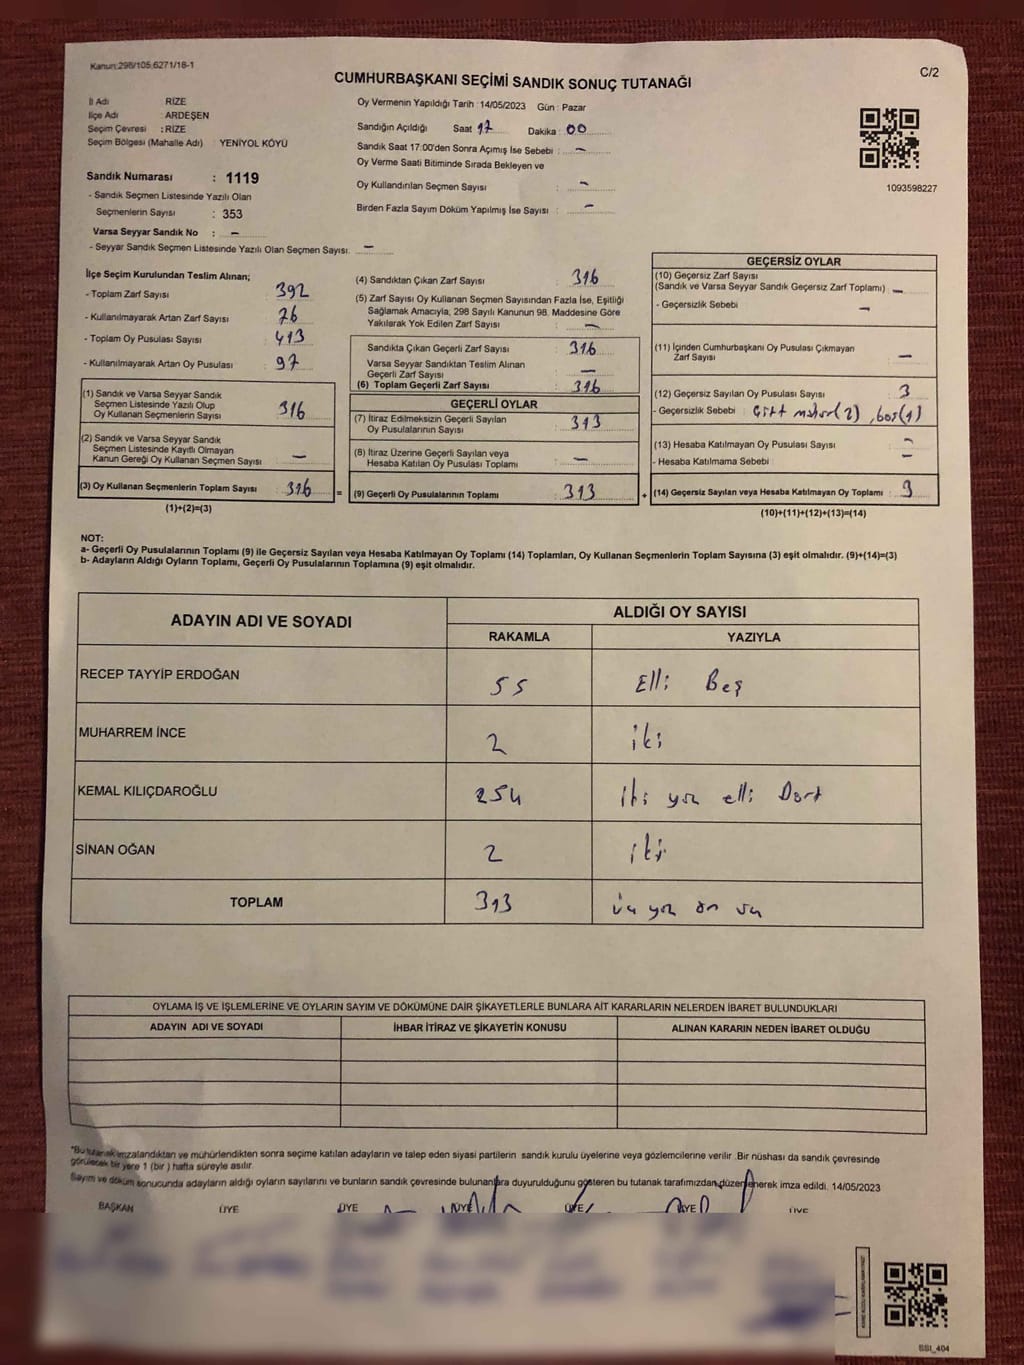 Kanun:298/105,6271/18-1
C/2
CUMHURBAŞKANI SEÇİMİ SANDIK SONUÇ TUTANAĞI
İl Adı RİZE
İlçe Adı ARDEŞEN
Seçim Çevresi : RİZE
Seçim Bölgesi (Mahalle Adı) : YENİYOL KÖYÜ
Sandık Numarası : 1119
- Sandık Seçmen Listesinde Yazılı Olan
Seçmenlerin Sayısı : 353
Varsa Seyyar Sandık No : -
- Seyyar Sandık Seçmen Listesinde Yazılı Olan Seçmen Sayısı: -
Oy Vermenin Yapıldığı Tarih : 14/05/2023 Gün : Pazar
Sandığın Açıldığı Saat 17 Dakika : 00
Sandık Saat 17:00'den Sonra Açımış İse Sebebi : -
Oy Verme Saati Bitiminde Sırada Bekleyen ve
Oy Kullandırılan Seçmen Sayısı : -
Birden Fazla Sayım Döküm Yapılmış İse Sayısı : -
1093598227
İlçe Seçim Kurulundan Teslim Alınan;
- Toplam Zarf Sayısı : 392
- Kullanılmayarak Artan Zarf Sayısı : 76
- Toplam Oy Pusulası Sayısı : 413
- Kullanılmayarak Artan Oy Pusulası : 97
(1) Sandık ve Varsa Seyyar Sandık
Seçmen Listesinde Yazılı Olup
Oy Kullanan Seçmenlerin Sayısı : 316
(2) Sandık ve Varsa Seyyar Sandık
Seçmen Listesinde Kayıtlı Olmayan
Kanun Gereği Oy Kullanan Seçmen Sayısı : -
(3) Oy Kullanan Seçmenlerin Toplam Sayısı : 316
(1)+(2)=(3)
=
(4) Sandıktan Çıkan Zarf Sayısı : 316
(5) Zarf Sayısı Oy Kullanan Seçmen Sayısından Fazla İse, Eşitliği
Sağlamak Amacıyla, 298 Sayılı Kanunun 98. Maddesine Göre
Yakılarak Yok Edilen Zarf Sayısı : -
Sandıkta Çıkan Geçerli Zarf Sayısı : 316
Varsa Seyyar Sandıktan Teslim Alınan
Geçerli Zarf Sayısı : -
(6) Toplam Geçerli Zarf Sayısı : 316
GEÇERLİ OYLAR
(7) İtiraz Edilmeksizin Geçerli Sayılan
Oy Pusulalarının Sayısı : 313
(8) İtiraz Üzerine Geçerli Sayılan veya
Hesaba Katılan Oy Pusulası Toplamı : -
(9) Geçerli Oy Pusulalarının Toplamı : 313
+
GEÇERSİZ OYLAR
(10) Geçersiz Zarf Sayısı
(Sandık ve Varsa Seyyar Sandık Geçersiz Zarf Toplamı) : -
- Geçersizlik Sebebi : -
(11) İçinden Cumhurbaşkanı Oy Pusulası Çıkmayan
Zarf Sayısı : -
(12) Geçersiz Sayılan Oy Pusulası Sayısı : 3
- Geçersizlik Sebebi : Çift mühür(2) , boş(1)
(13) Hesaba Katılmayan Oy Pusulası Sayısı : -
- Hesaba Katılmama Sebebi : -
(14) Geçersiz Sayılan veya Hesaba Katılmayan Oy Toplamı : 3
(10)+(11)+(12)+(13)=(14)
NOT:
a- Geçerli Oy Pusulalarının Toplamı (9) ile Geçersiz Sayılan veya Hesaba Katılmayan Oy Toplamı (14) Toplamları, Oy Kullanan Seçmenlerin Toplam Sayısına (3) eşit olmalıdır. (9)+(14)=(3)
b- Adayların Aldığı Oyların Toplamı, Geçerli Oy Pusulalarının Toplamına (9) eşit olmalıdır.
ADAYIN ADI VE SOYADI
ALDIĞI OY SAYISI
RAKAMLA YAZIYLA
RECEP TAYYİP ERDOĞAN 55 Elli Beş
MUHARREM İNCE 2 iki
KEMAL KILIÇDAROĞLU 254 iki yüz elli Dört
SİNAN OĞAN 2 iki
TOPLAM 313 üç yüz on üç
OYLAMA İŞ VE İŞLEMLERİNE VE OYLARIN SAYIM VE DÖKÜMÜNE DAİR ŞİKAYETLERLE BUNLARA AİT KARARLARIN NELERDEN İBARET BULUNDUKLARI
ADAYIN ADI VE SOYADI İHBAR İTİRAZ VE ŞİKAYETİN KONUSU ALINAN KARARIN NEDEN İBARET OLDUĞU
*Bu tutanak imzalandıktan ve mühürlendikten sonra seçime katılan adayların ve talep eden siyasi partilerin sandık kurulu üyelerine veya gözlemcilerine verilir .Bir nüshası da sandık çevresinde
görülecek bir yere 1 (bir ) hafta süreyle asılır.
Sayım ve döküm sonucunda adayların aldığı oyların sayılarını ve bunların sandık çevresinde bulunanlara duyurulduğunu gösteren bu tutanak tarafımızdan düzenlenerek imza edildi. 14/05/2023
BAŞKAN ÜYE ÜYE ÜYE ÜYE ÜYE ÜYE
BSI_404